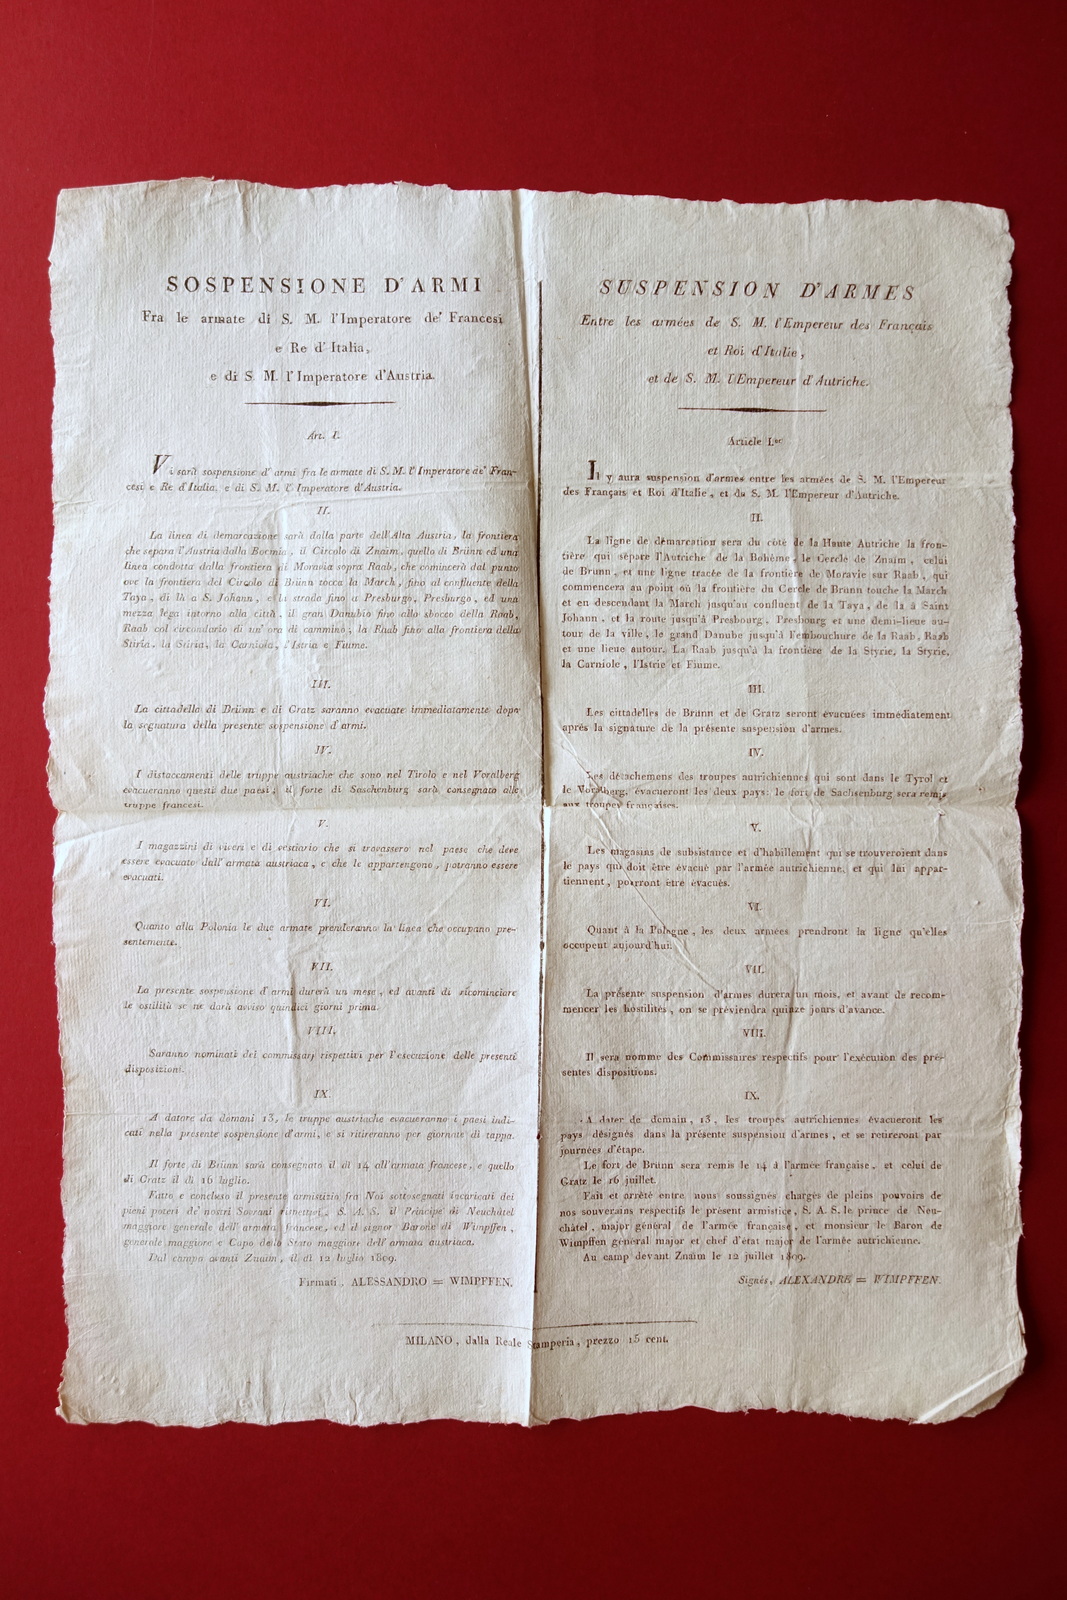 SOSPENSIONE D'ARMI
Fra le armate di S. M. l'Imperatore de' Francesi
e Re d'Italia,
e di S. M. l'Imperatore d'Austria.
Art. I.
Vi sarà sospensione d'armi fra le armate di S. M. l'Imperatore de' Fran-
cesi e Re d'Italia, e di S. M. l'Imperatore d'Austria.
II.
La linea di demarcazione sarà dalla parte dell'Alta Austria, la frontiera
che separa l'Austria dalla Boemia, il Circolo di Znaim, quello di Brünn ed una
linea condotta dalla frontiera di Moravia sopra Raab, che comincerà dal punto
ove la frontiera del Circolo di Brünn tocca la March, fino al confluente della
Taya, di là a S. Johann, e la strada fino a Presburgo, Presburgo, ed una
mezza lega intorno alla città, il gran Danubio fino allo sbocco della Raab,
Raab col circondario di un'ora di cammino; la Raab fino alla frontiera della
Stiria, la Stiria, la Carniola, l'Istria e Fiume.
III.
La cittadella di Brünn e di Gratz saranno evacuate immediatamente dopo
la segnatura della presente sospensione d'armi.
IV.
I distaccamenti delle truppe austriache che sono nel Tirolo e nel Voralberg
evacueranno questi due paesi; il forte di Saschenburg sarà consegnato alle
truppe francesi.
V.
I magazzini di viveri e di vestiario che si trovassero nel paese che deve
essere evacuato dall'armata austriaca, e che le appartengono, potranno essere
evacuati.
VI.
Quanto alla Polonia le due armate prenderanno la linea che occupano pre-
sentemente.
VII.
La presente sospensione d'armi durerà un mese, ed avanti di ricominciare
le ostilità se ne darà avviso quindici giorni prima.
VIII.
Saranno nominati dei commissarj rispettivi per l'esecuzione delle presenti
disposizioni.
IX.
A datare da domani 13, le truppe austriache evacueranno i paesi indi-
cati nella presente sospensione d'armi, e si ritireranno per giornate di tappa.
Il forte di Brünn sarà consegnato il dì 14 all'armata francese, e quello
di Gratz il dì 16 luglio.
Fatto e concluso il presente armistizio fra Noi sottosegnati incaricati dei
pieni poteri de' nostri Sovrani rispettivi, S. A. S. il Principe di Neuchâtel
maggiore generale dell'armata francese, ed il signor Barone di Wimpffen,
generale maggiore e Capo dello Stato maggiore dell'armata austriaca.
Dal campo avanti Znaim, il dì 12 luglio 1809.
Firmati. ALESSANDRO = WIMPFFEN.
SUSPENSION D'ARMES
Entre les armées de S. M. l'Empereur des Français
et Roi d'Italie,
et de S. M. l'Empereur d'Autriche.
Article I.er
Il y aura suspension d'armes entre les armées de S. M. l'Empereur
des Français et Roi d'Italie, et de S. M. l'Empereur d'Autriche.
II.
La ligne de démarcation sera du côté de la Haute Autriche la fron-
tière qui sépare l'Autriche de la Bohême, le Cercle de Znaim, celui
de Brunn, et une ligne tracée de la frontière de Moravie sur Raab, qui
commencera au point où la frontière du Cercle de Brunn touche la March
et en descendant la March jusqu'au confluent de la Taya, de là à Saint
Johann, et la route jusqu'à Presbourg, Presbourg et une demi-lieue au-
tour de la ville, le grand Danube jusqu'à l'embouchure de la Raab, Raab
et une lieue autour. La Raab jusqu'à la frontière de la Styrie, la Styrie,
la Carniole, l'Istrie et Fiume.
III.
Les citadelles de Brünn et de Gratz seront évacuées immédiatement
après la signature de la présente suspension d'armes.
IV.
Les détachemens des troupes autrichiennes qui sont dans le Tyrol et
le Voralberg, évacueront les deux pays: le fort de Sachsenburg sera remis
aux troupes françaises.
V.
Les magasins de subsistance et d'habillement qui se trouveroient dans
le pays qui doit être évacué par l'armée autrichienne, et qui lui appar-
tiennent, pourront être évacués.
VI.
Quant à la Pologne, les deux armées prendront la ligne qu'elles
occupent aujourd'hui.
VII.
La présente suspension d'armes durera un mois, et avant de recom-
mencer les hostilités, on se préviendra quinze jours d'avance.
VIII.
Il sera nommé des Commissaires respectifs pour l'exécution des pré-
sentes dispositions.
IX.
A dater de demain, 13, les troupes autrichiennes évacueront les
pays désignés dans la présente suspension d'armes, et se retireront par
journées d'étape.
Le fort de Brünn sera remis le 14 à l'armée française, et celui de
Gratz le 16 juillet.
Fait et arrêté entre nous soussignés chargés de pleins pouvoirs de
nos souverains respectifs le présent armistice, S. A. S. le prince de Neu-
châtel, major général de l'armée française, et monsieur le Baron de
Wimpffen général major et chef d'état major de l'armée autrichienne.
Au camp devant Znaim le 12 juillet 1809.
Signés, ALEXANDRE = WIMPFFEN.
MILANO, dalla Reale Stamperia, prezzo 15 cent.